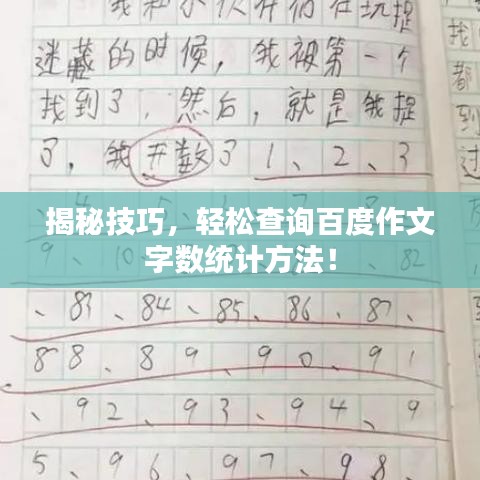 我和小伙伴们在玩捉
迷藏的时候，我被第一个
找到了，然后，就是我捉
了，我开数了1、2、3
揭秘技巧，轻松查询百度作文
字数统计方法！
9、10
82
、83、84、85、86、87、
88、89、90、91
、92、93、94、9
5、96、97、98、
找
都
到
过